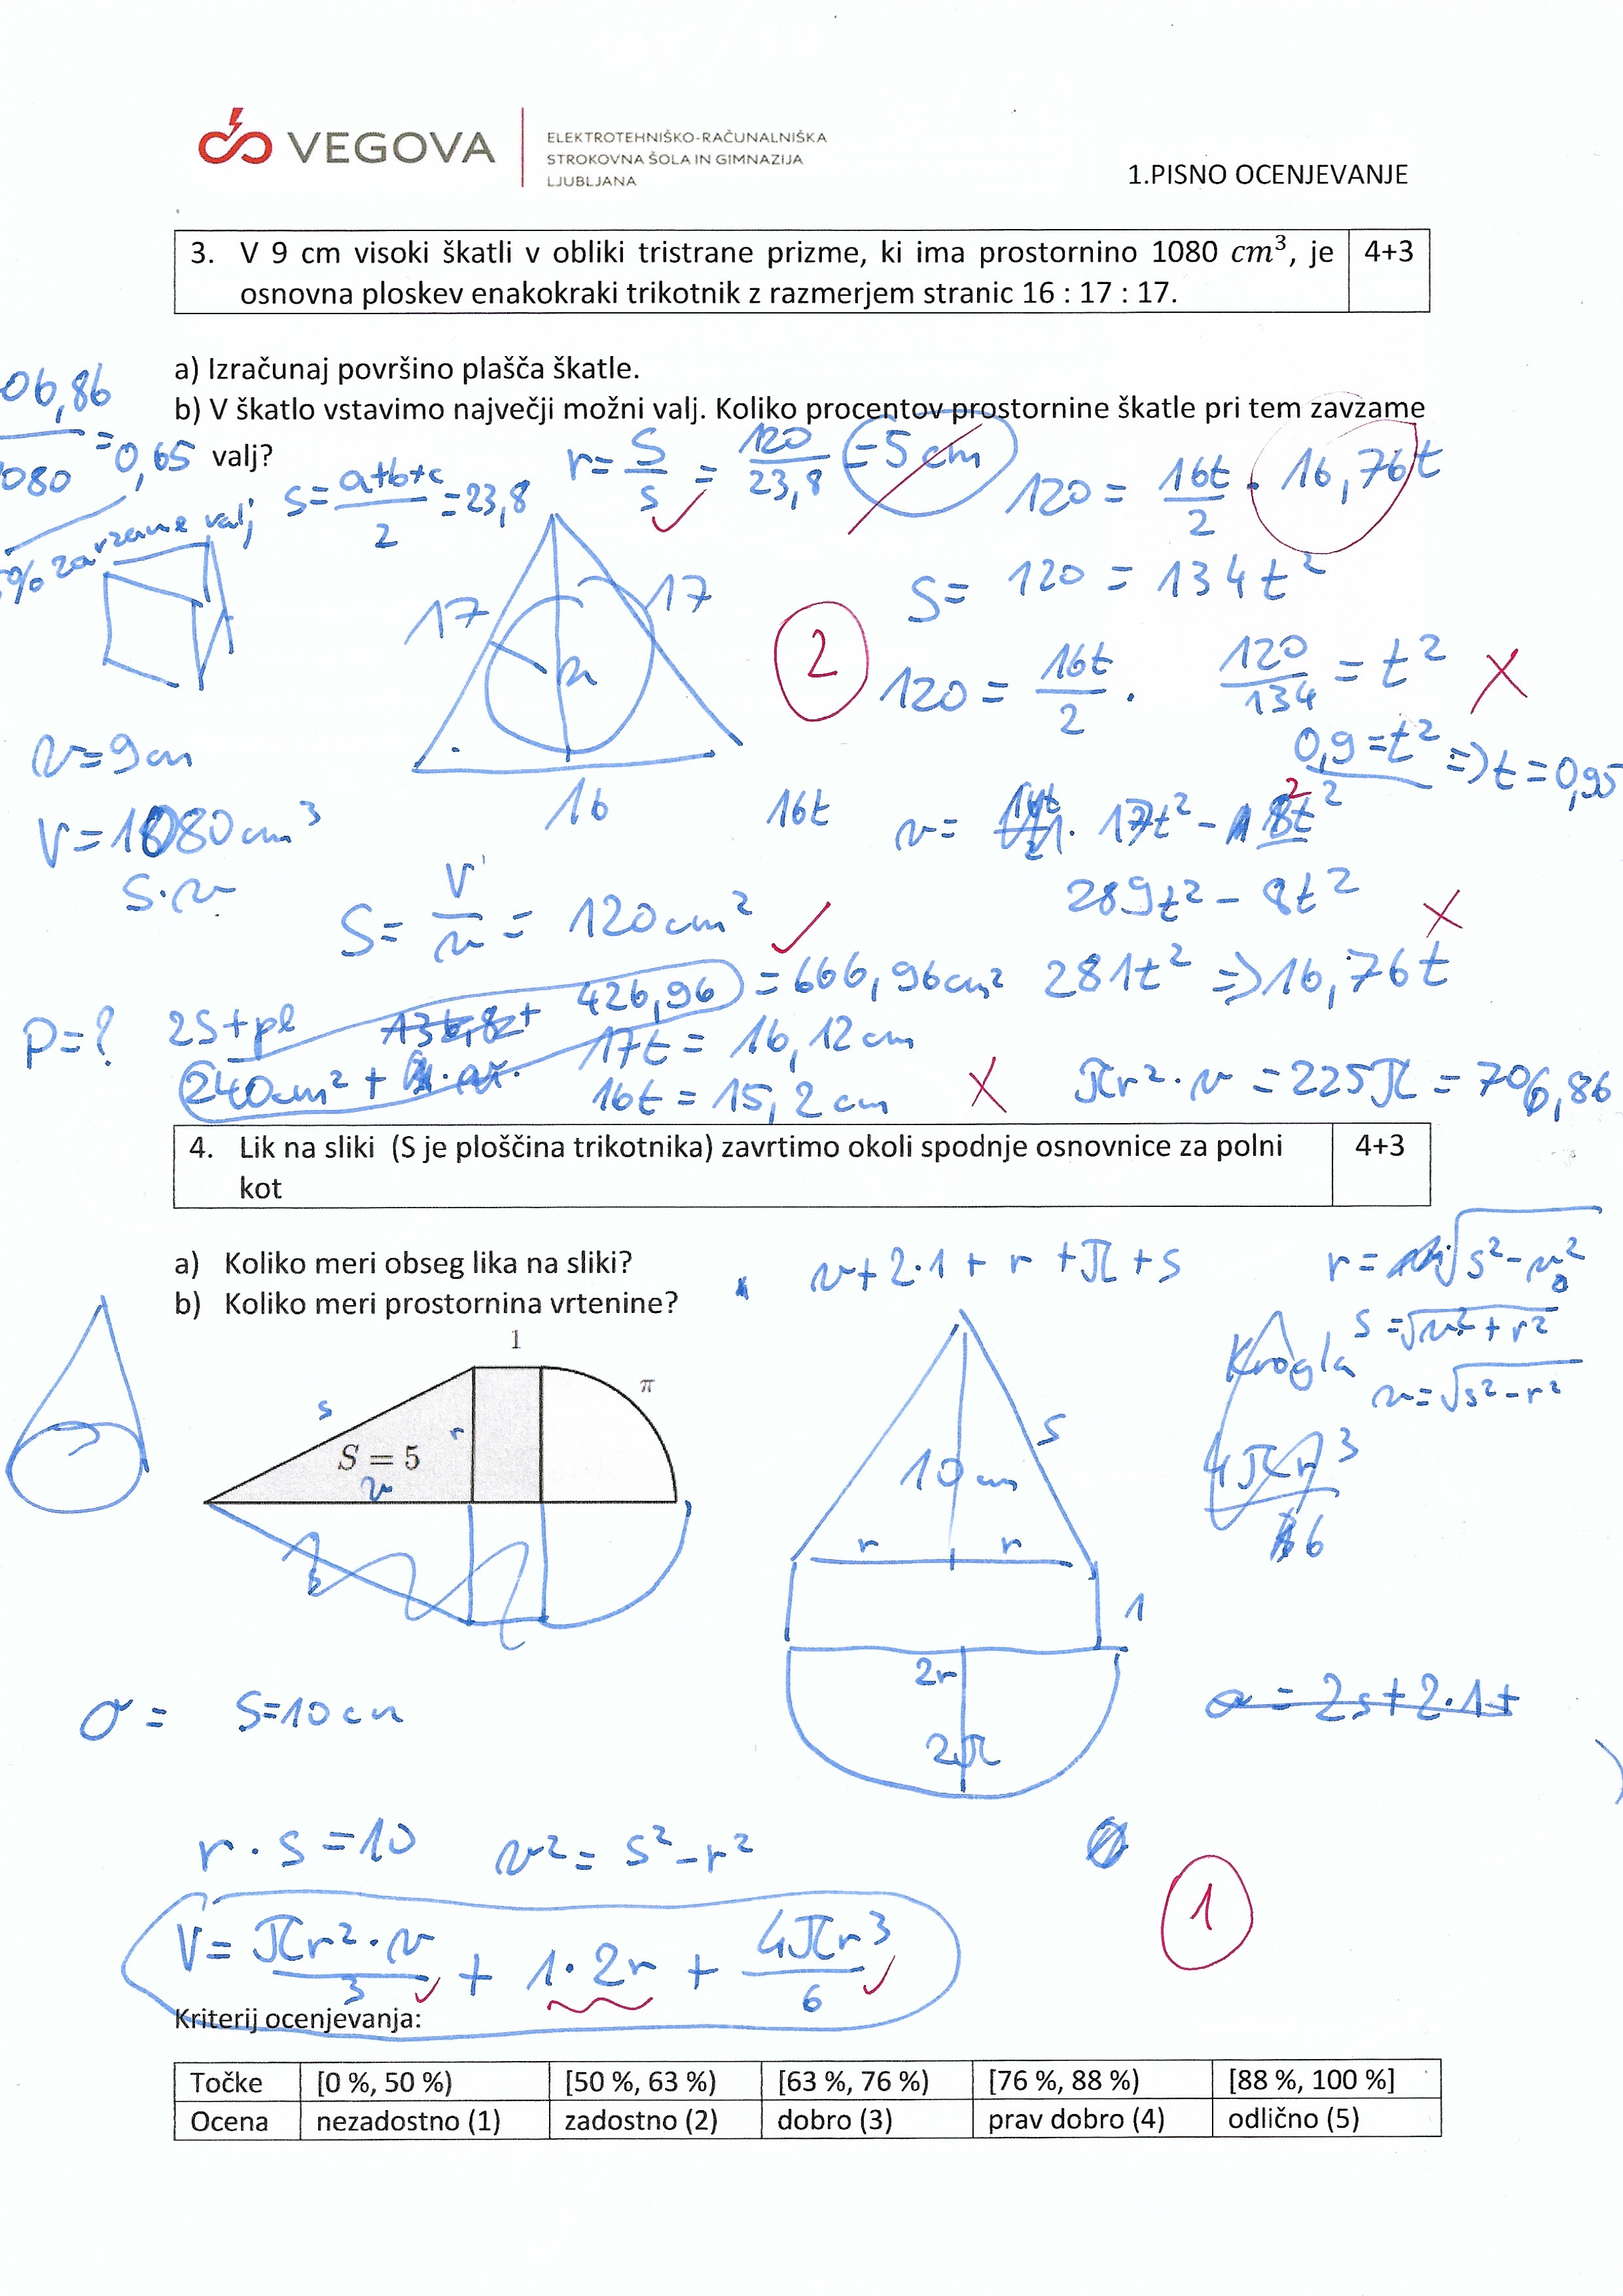 VEGOVA
ELEKTROTEHNIŠKO-RAČUNALNIŠKA
STROKOVNA ŠOLA IN GIMNAZIJA
LJUBLJANA
1.PISNO OCENJEVANJE
3. V 9 cm visoki škatli v obliki tristrane prizme, ki ima prostornino 1080 cm³, je
osnovna ploskev enakokraki trikotnik z razmerjem stranic 16 : 17 : 17.
4+3
a) Izračunaj površino plašča škatle.
b) V škatlo vstavimo največji možni valj. Koliko procentov prostornine škatle pri tem zavzame
valj?
06,86
080 = 0,65
% zavzame valj
s = a+b+c / 2 = 23,8
r = S/s = 120/23,8 = 5 cm
120 = 16t/2 · 16,76t
S = 120 = 134t²
17 17
16
2
120 = 16t/2 ·
120/134 = t²
0,9 = t² => t = 0,95
v = 9cm
V = 1080cm³
S·v
16t
v = 17t² - 8t²
289t² - 8t²
281t² => 16,76t
S = V/v = 120cm²
P = ? 2S + pl
240cm² + 426,96 = 666,96cm²
17t = 16,12cm
16t = 15,2cm
πr²·v = 225π = 706,86
4. Lik na sliki (S je ploščina trikotnika) zavrtimo okoli spodnje osnovnice za polni
kot
4+3
a) Koliko meri obseg lika na sliki?
b) Koliko meri prostornina vrtenine?
v + 2·1 + r + π + s
r = √s²-v²
s = √v²+r²
v = √s²-r²
Krogla
4πr³
6
1
π
s
r
S = 5
v
10cm
s
r r
1
2r
2π
o = s=10cm
o = 2s + 2·1 +
r · s = 10
v² = s² - r²
1
V = πr²·v / 3 + 1·2r + 4πr³ / 6
Kriterij ocenjevanja:
Točke [0 %, 50 %) [50 %, 63 %) [63 %, 76 %) [76 %, 88 %) [88 %, 100 %]
Ocena nezadostno (1) zadostno (2) dobro (3) prav dobro (4) odlično (5)